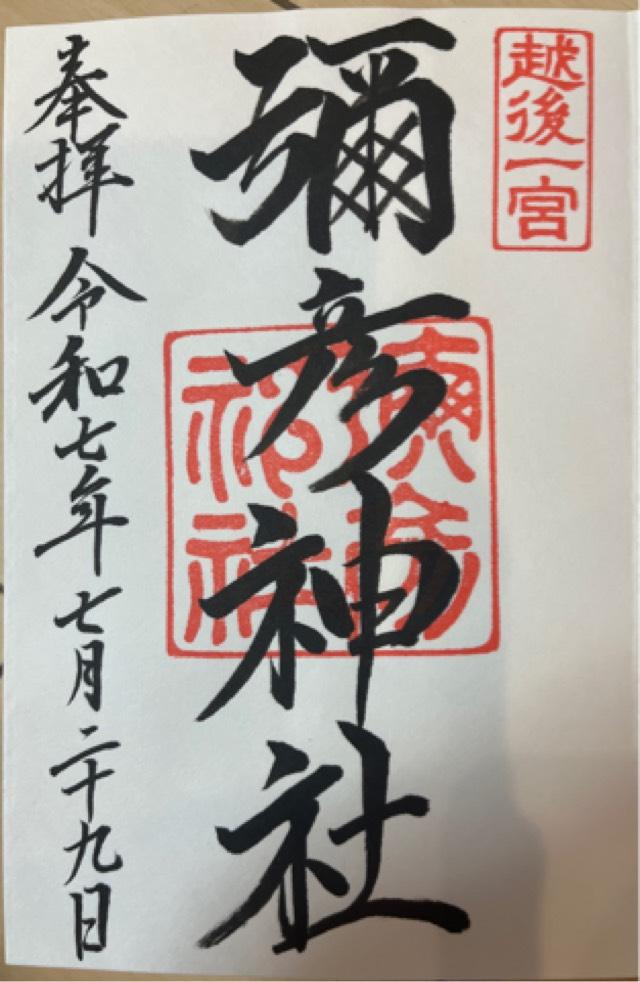 越後一宮
彌彦神社
彌彦神社
奉拝 令和七年七月二十九日